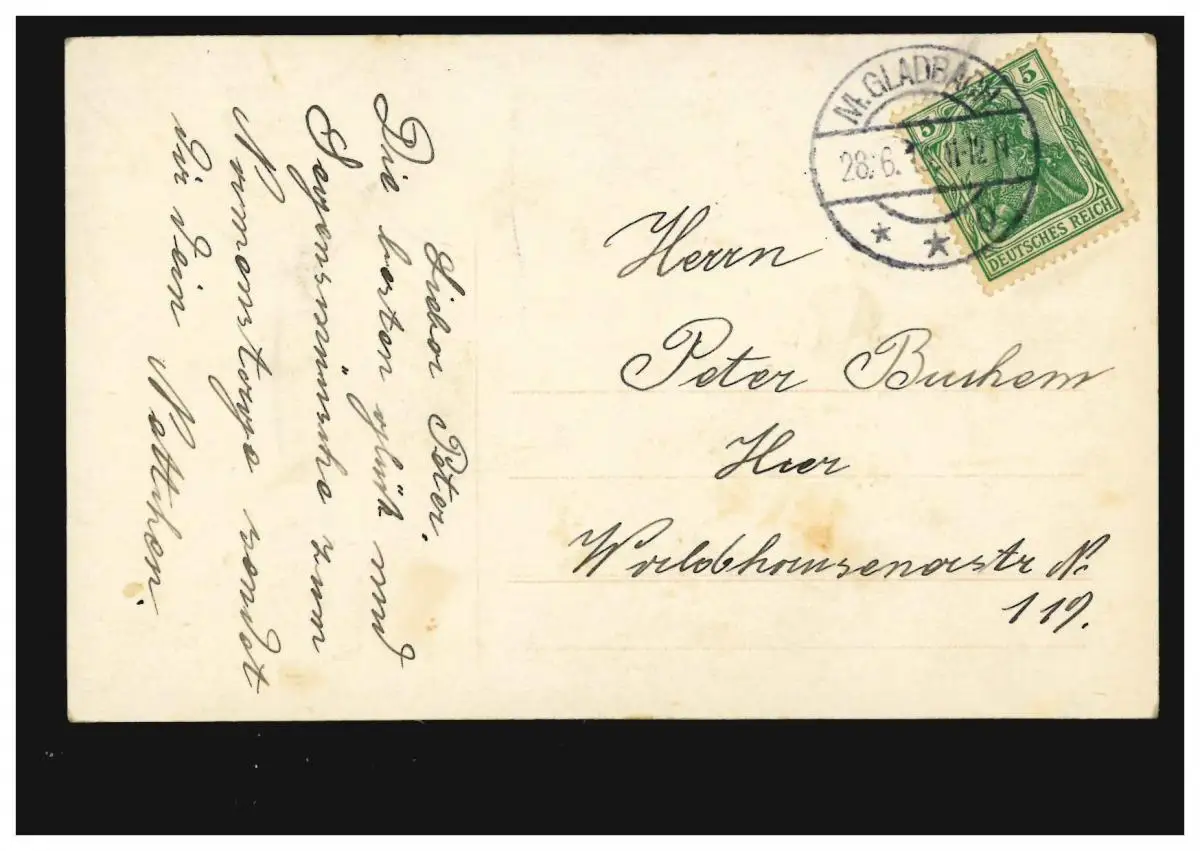 Lieber Peter.
Die besten glück und
Segenswünsche zum
Namenstage sendet
dir dein Matthem.
M. GLADBACH
28.6. 11-12 N
5 5
DEUTSCHES REICH
Herrn
Peter Bushem
Hier
Waldhausenerstr No
119.